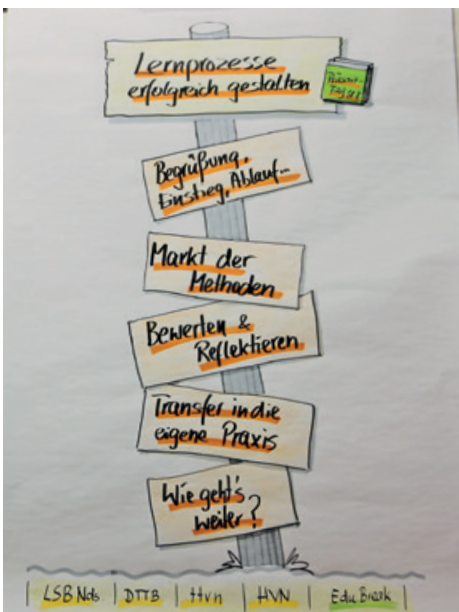 Lernprozesse
erfolgreich gestalten
Begrüßung,
Einstieg, Ablauf...
Markt der
Methoden
Bewerten &
Reflektieren
Transfer in die
eigene Praxis
Wie geht's
weiter?
LSB Nds | DTTB | Hvn | HVN |